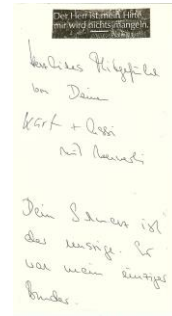 Der Herr ist mein Hirte,
mir wird nichts mangeln.
Herzliches Mitgefühl
von Deinem
Kurt + Rossi
mit
Dein Schmerz ist
der unsrige. Er
war mein einziger
Bruder.